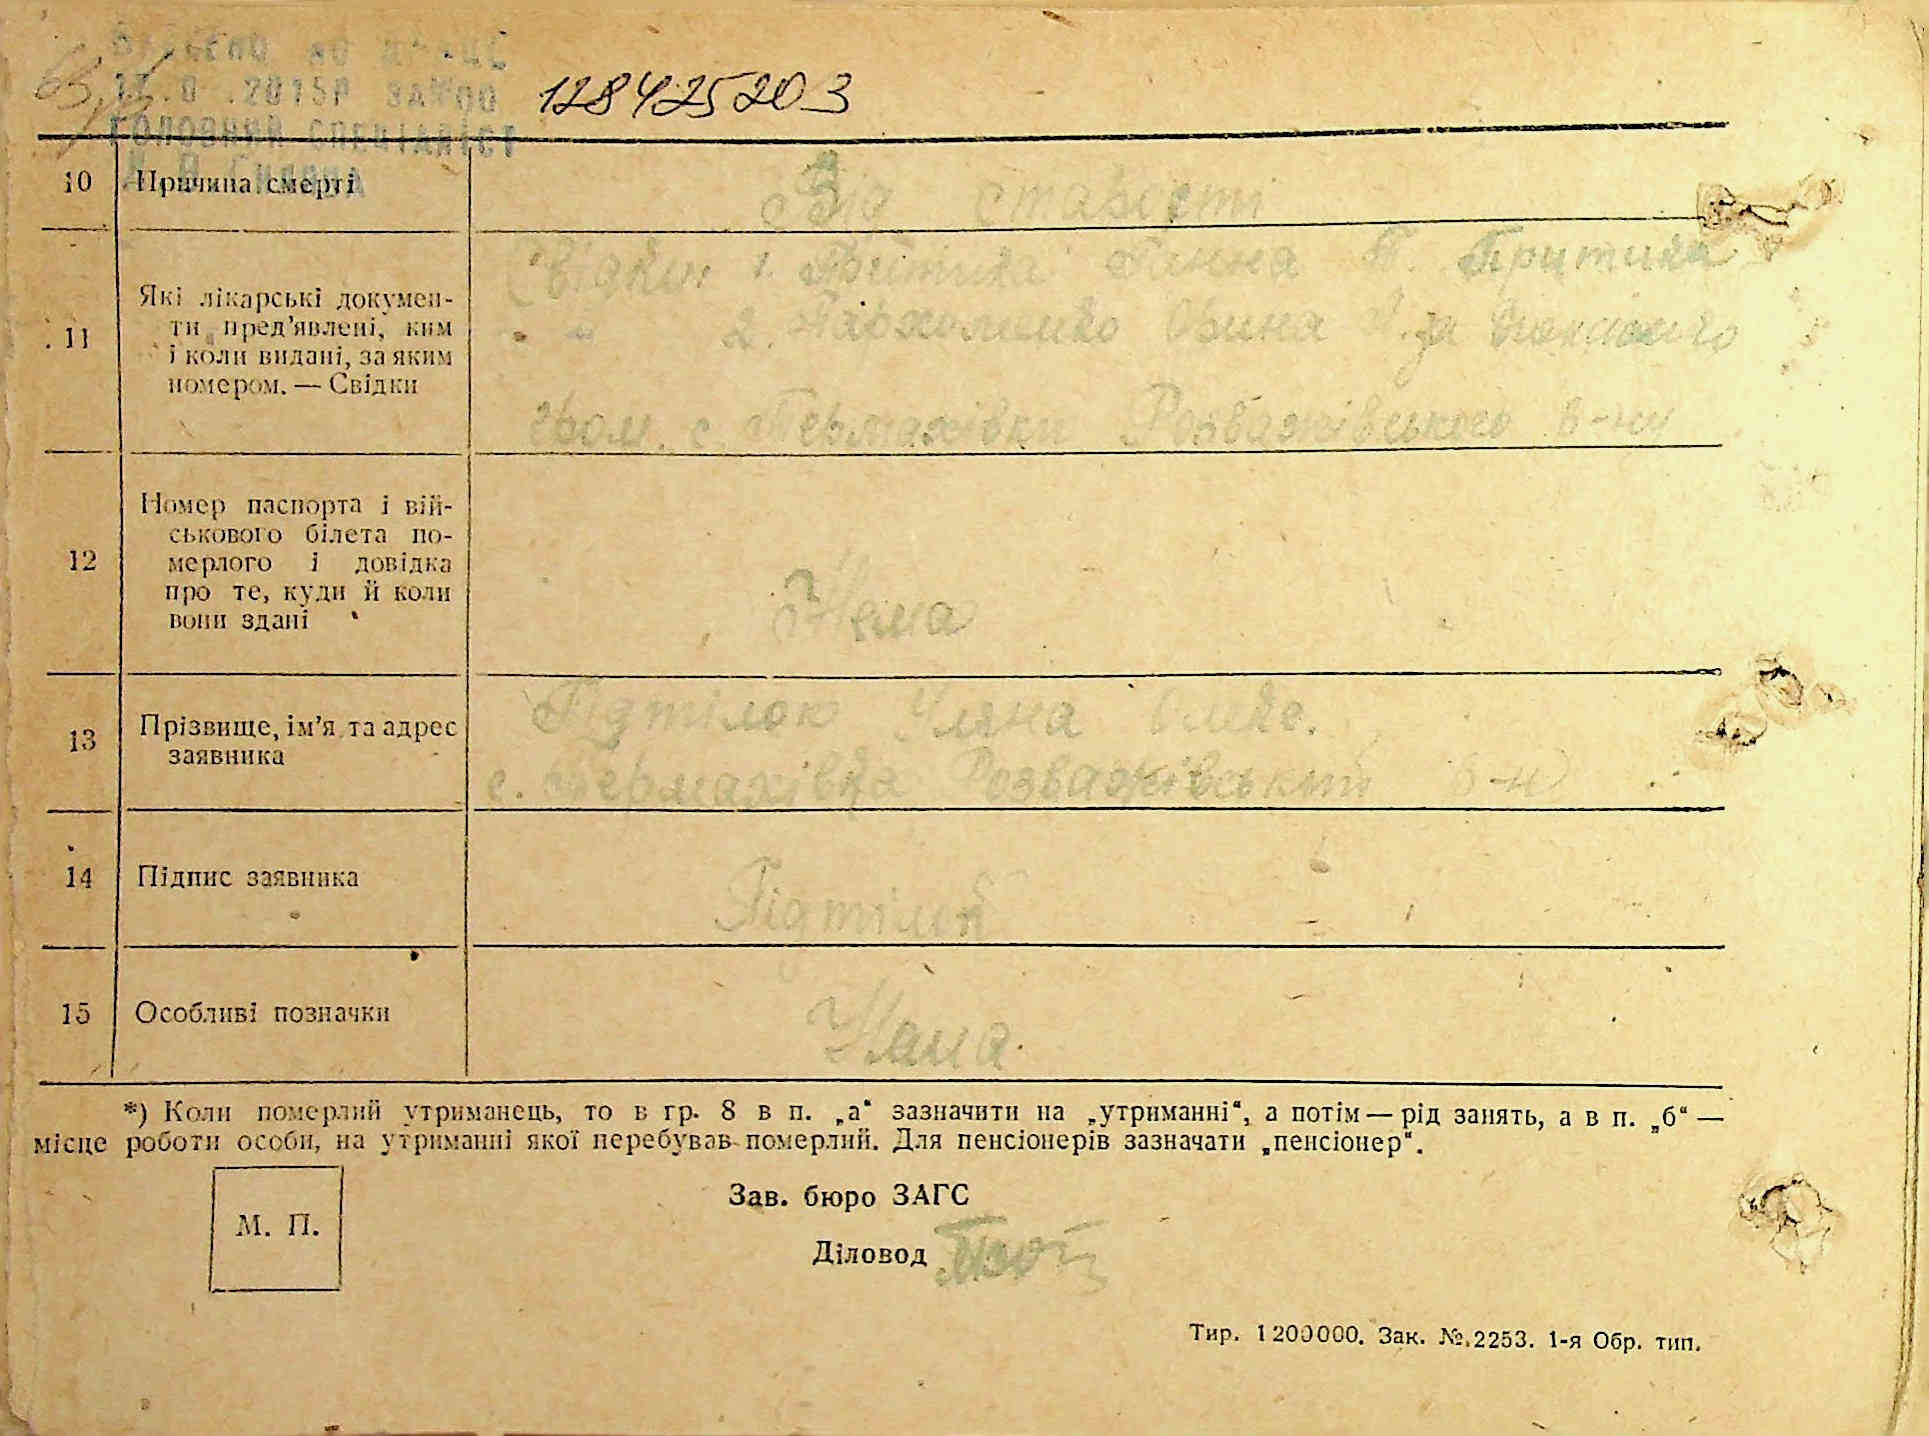 128425203
ГОЛОВНИЙ СПЕЦІАЛІСТ
10 Причина смерті
Від старості
11 Які лікарські докумен-
ти пред'явлені, ким
і коли видані, за яким
номером. — Свідки
Свідки 1. Притика Ганна Т. Притика
2. Пархоменко Орина за
гром. с. Термахівки Розважівського р-ну
12 Номер паспорта і вій-
ськового білета по-
мерлого і довідка
про те, куди й коли
вони здані
Нема
13 Прізвище, ім'я та адрес
заявника
Підтілок Уляна
с. Термахівка Розважівський р-н
14 Підпис заявника
Підтілок
15 Особливі позначки
Нема.
*) Коли померлий утриманець, то в гр. 8 в п. „а“ зазначити на „утриманні“, а потім — рід занять, а в п. „б“ —
місце роботи особи, на утриманні якої перебував померлий. Для пенсіонерів зазначати „пенсіонер“.
М. П.
Зав. бюро ЗАГС
Діловод
Тир. 1200000. Зак. №.2253. 1-я Обр. тип.